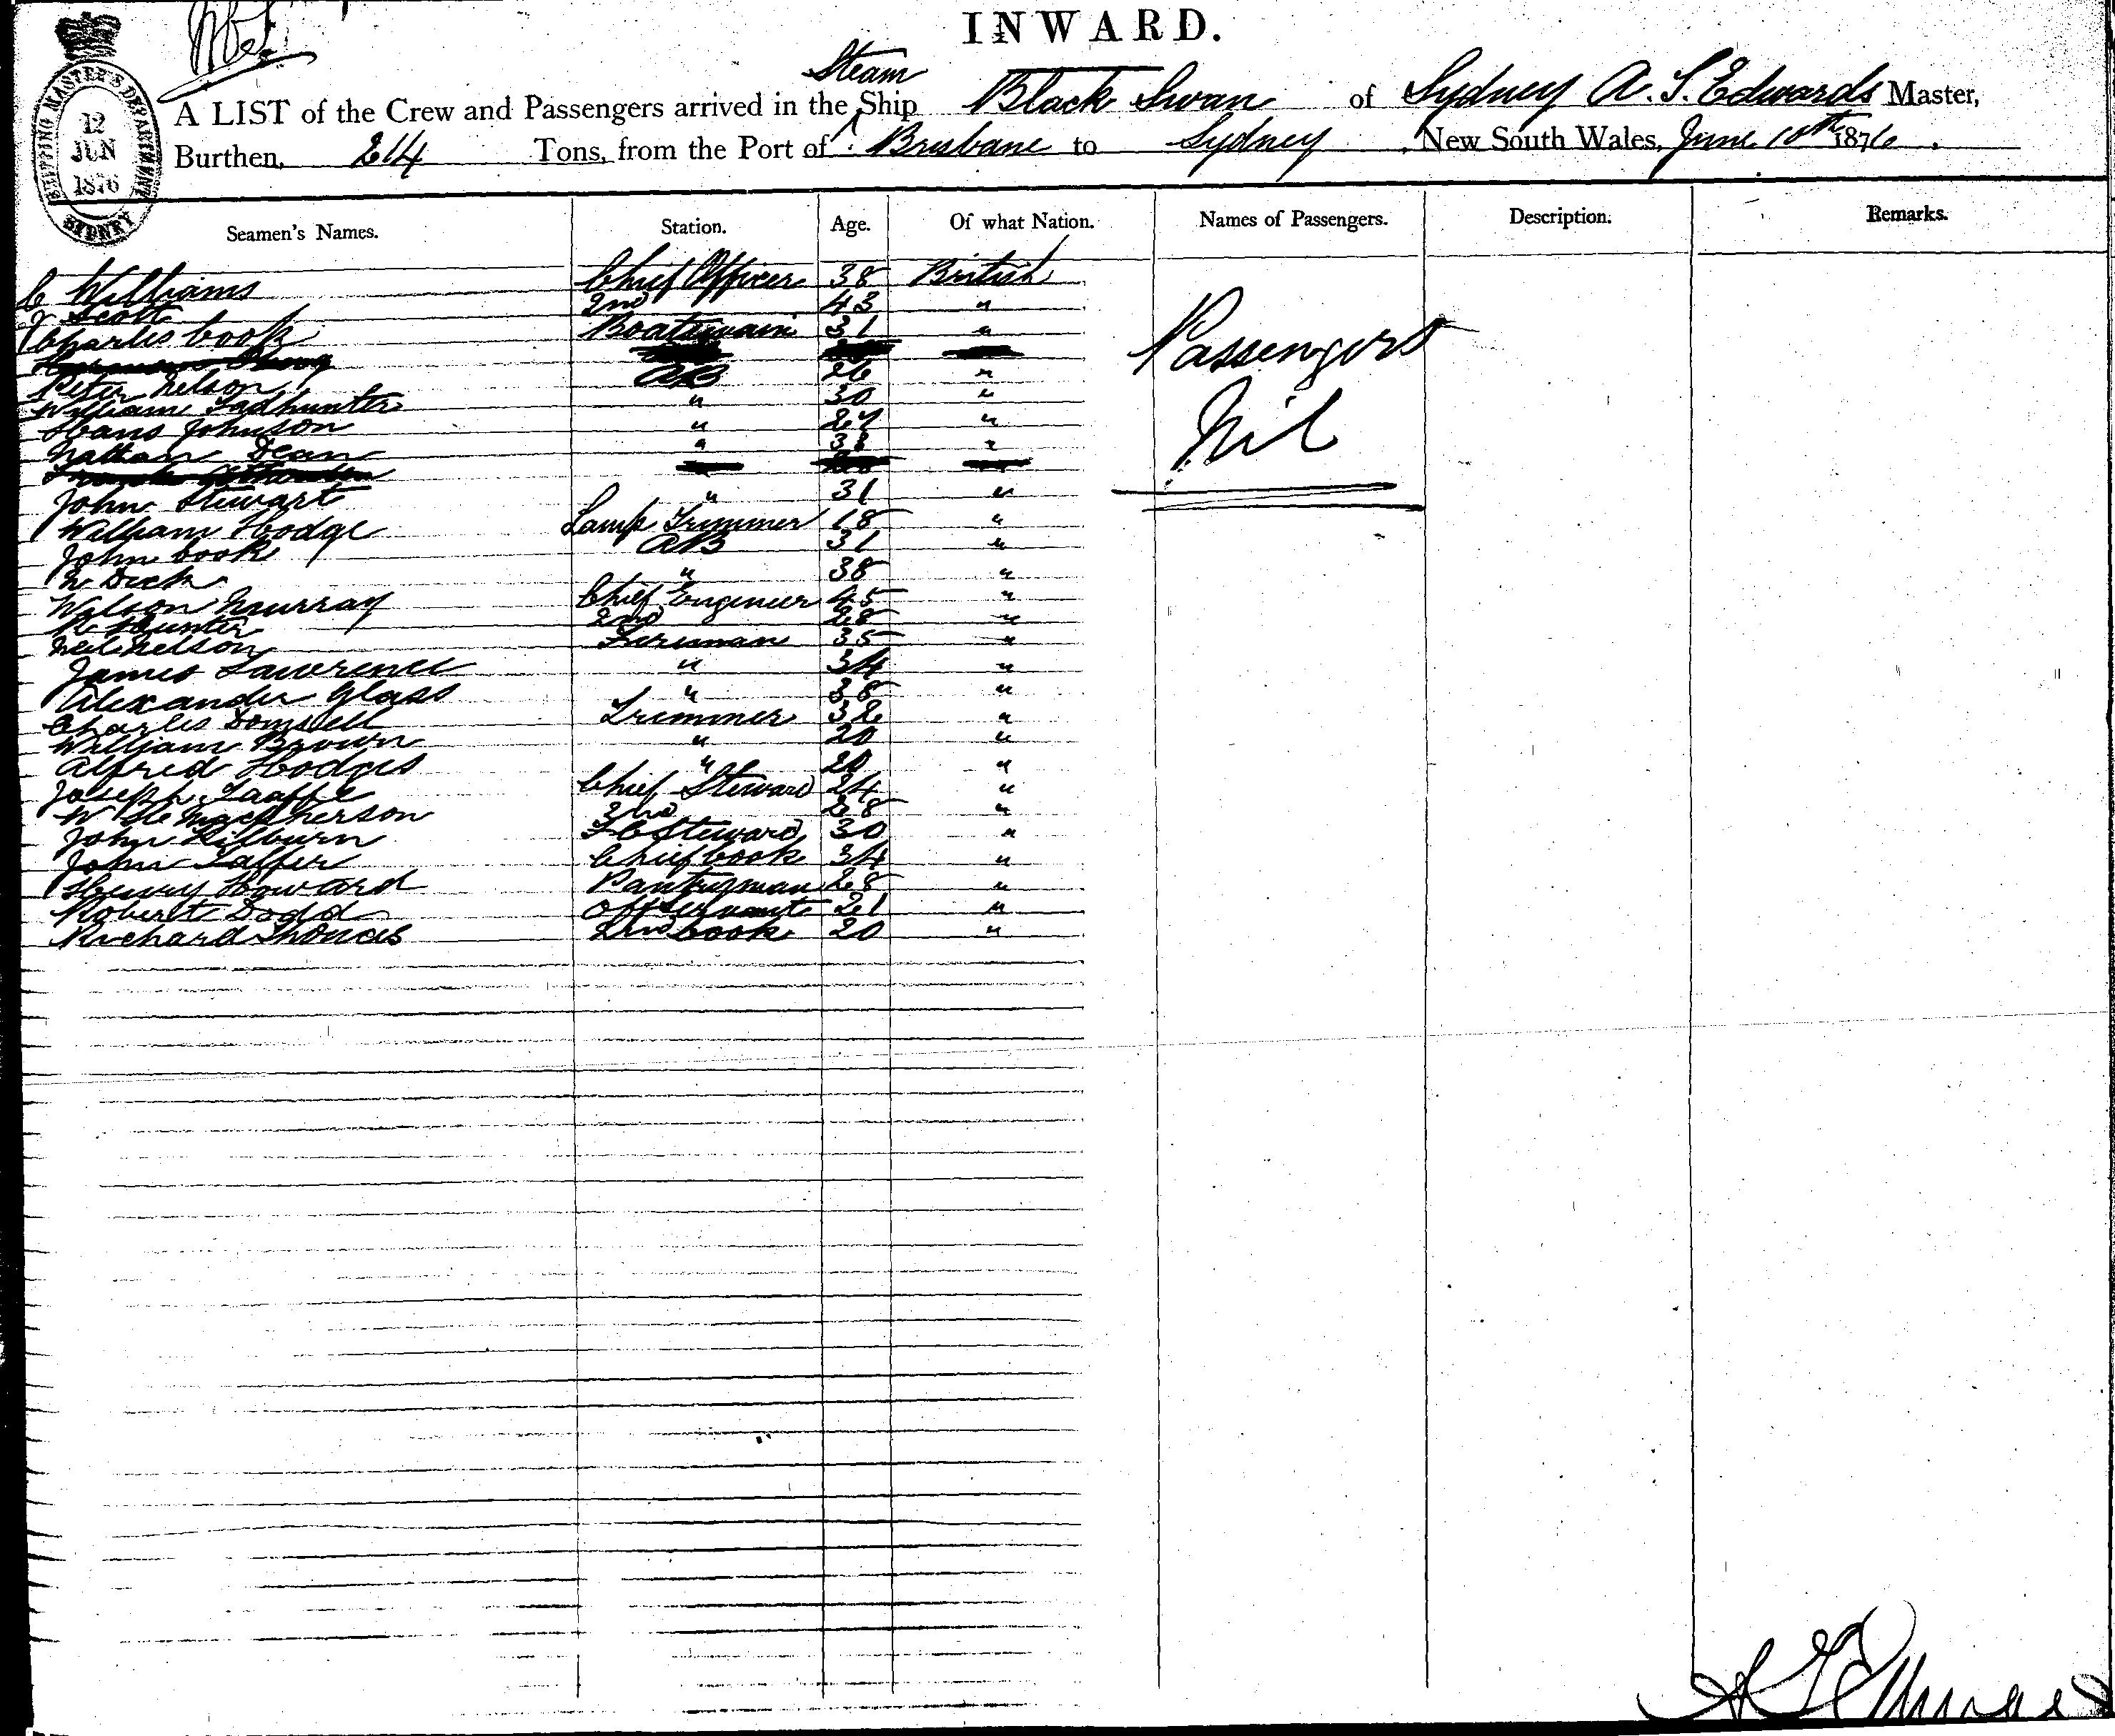 INWARD.
SHIPPING MASTER'S DEPARTMENT
12
JUN
1876
SYDNEY
Steam
A LIST of the Crew and Passengers arrived in the Ship Black Swan of Sydney A. S. Edwards Master,
Burthen, 214 Tons, from the Port of Brisbane to Sydney, New South Wales, June 10th 1876.
Seamen's Names. Station. Age. Of what Nation. Names of Passengers. Description. Remarks.
C Williams Chief Officer 38 British
J Scott 2nd 43 "
Charles Cook Boatswain 31 "
Peter Nelson AB 26 "
William Todhunter " 30 "
Hans Johnson " 27 "
Nathan Dean " 38 "
John Stewart " 31 "
William Hodge Lamp Trimmer 18 "
John Cook AB 31 "
Dick " 38 "
Wilson Murray Chief Engineer 45 "
Hunter 2nd 28 "
Neil Nelson Fireman 35 "
James Lawrence " 34 "
Alexander Glass " 38 "
Charles Trimmer 32 "
William Brown " 20 "
Alfred Hodges " 20 "
Joseph Taaffe Chief Steward 24 "
W MacPherson 2nd 28 "
John Kilburn Steward 30 "
John Chief Cook 34 "
Henry Howard Pantryman 28 "
Robert Dodd Off Servant 21 "
Richard Thomas 2nd Cook 20 "
Passengers
Nil